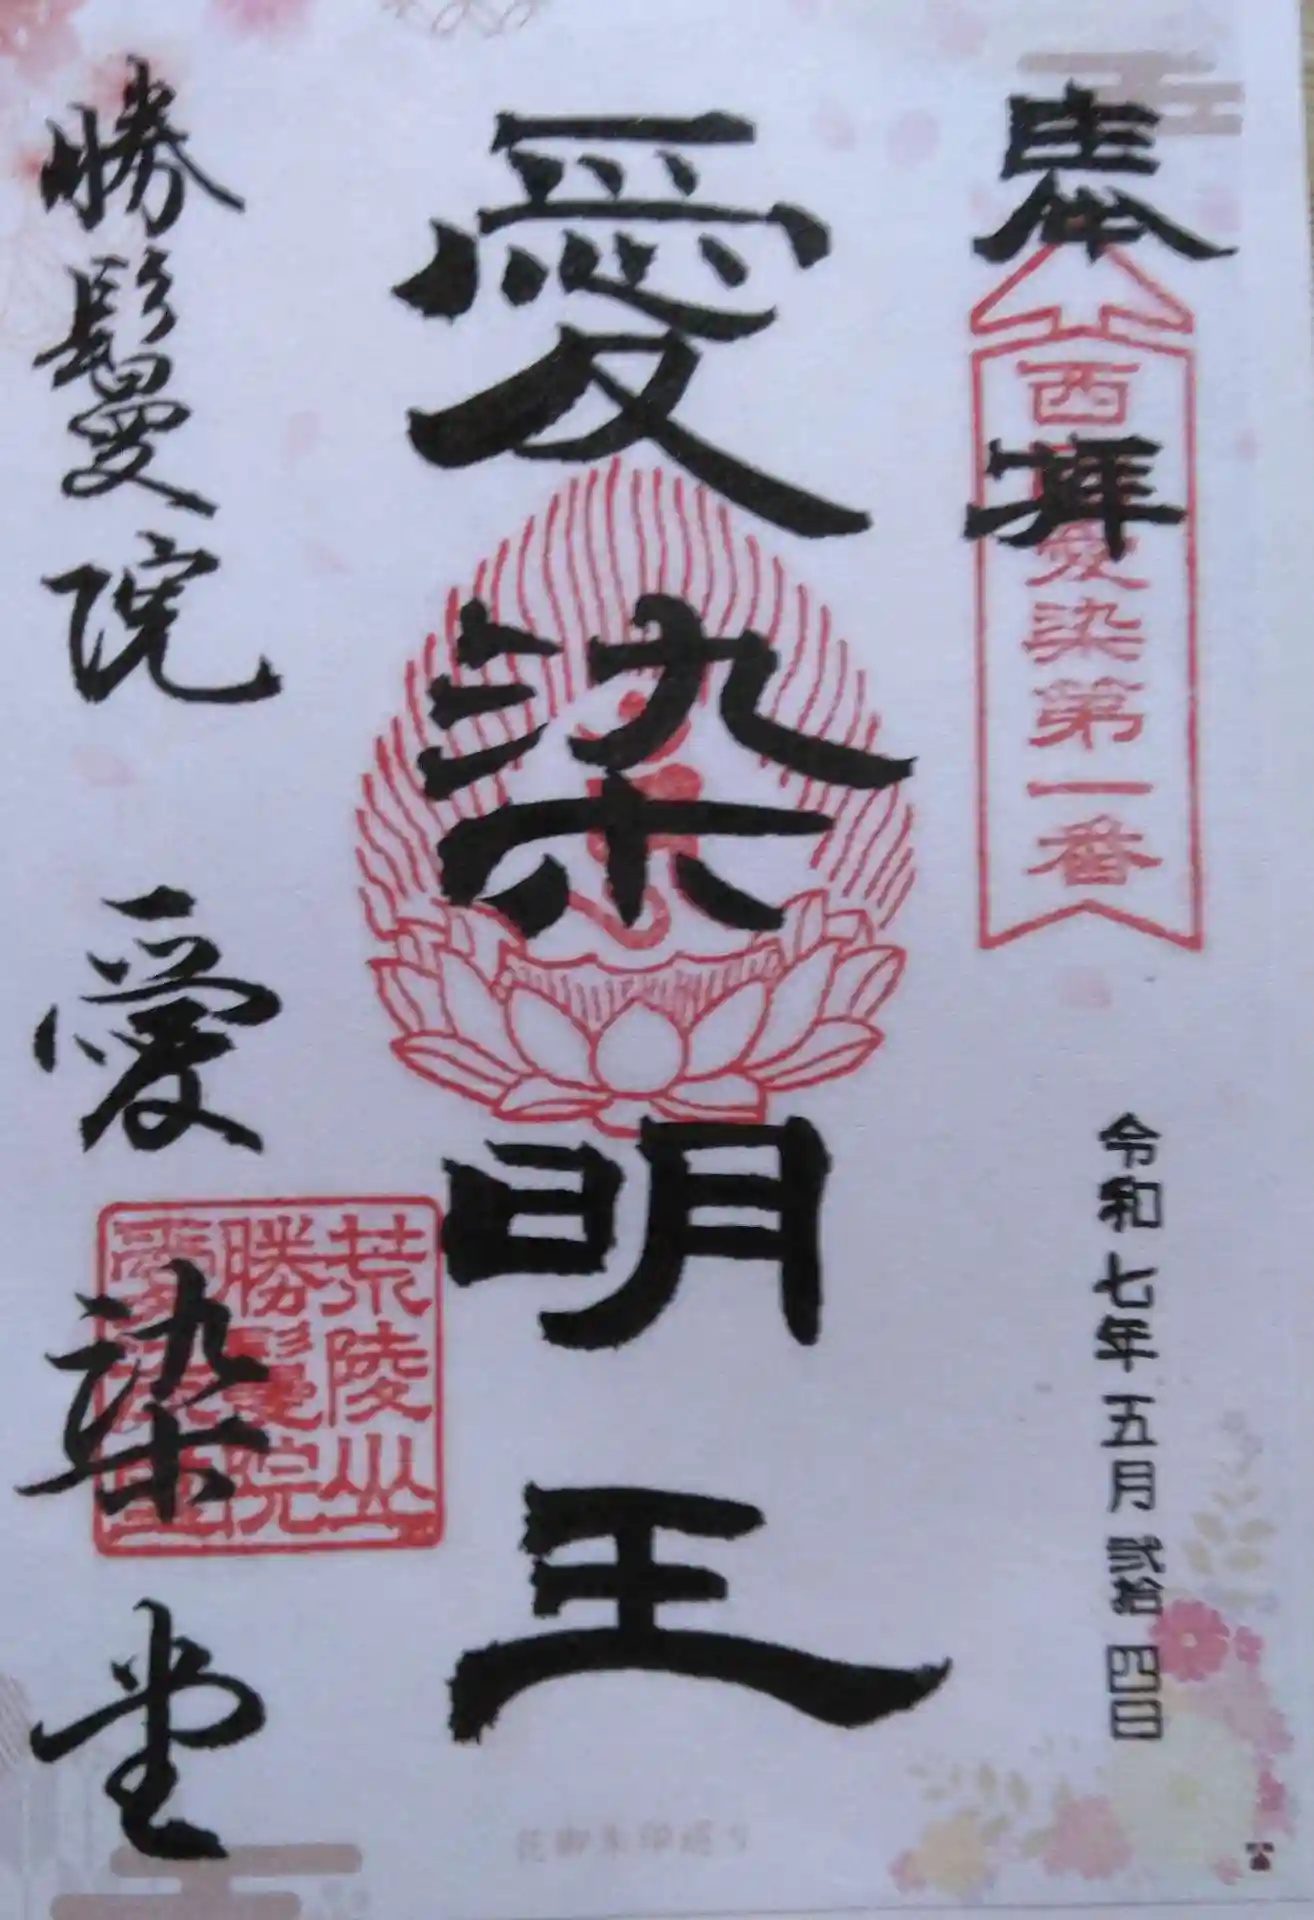 奉拝
西國愛染第一番
令和七年五月弐拾四日
愛染明王
荒陵山
勝鬘院
愛染堂
勝鬘院 愛染堂
花御朱印巡り